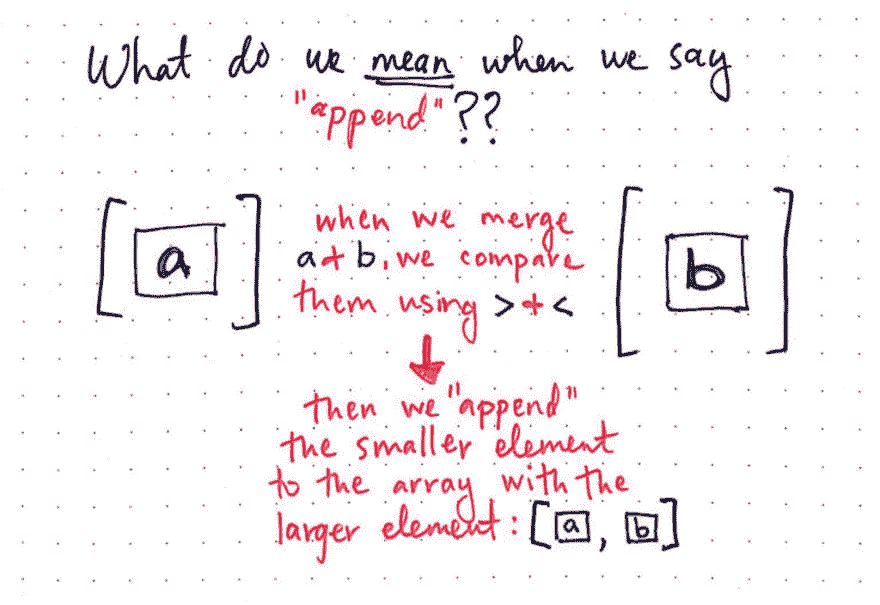 What do we mean when we say
"append"??
[a]
when we merge
a + b, we compare
them using > + <
[b]
then we "append"
the smaller element
to the array with the
larger element: [a, b]